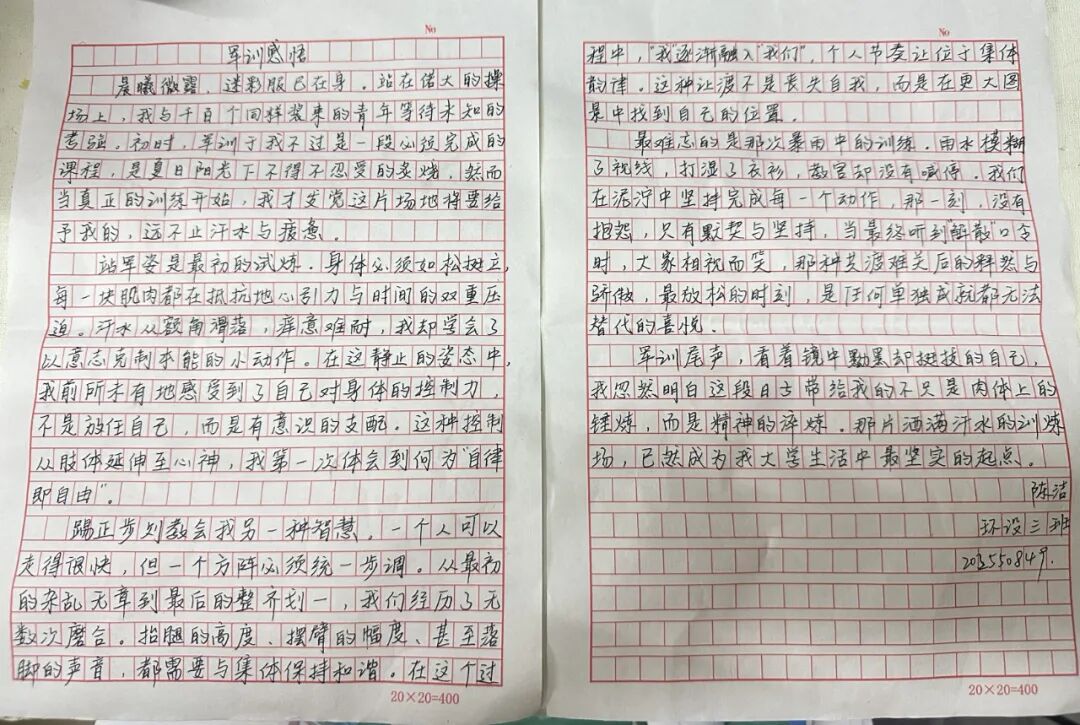 No
军训感悟
晨曦微露，迷彩服已在身。站在偌大的操
场上，我与千百个同样装束的青年等待未知的
考验。初时，军训于我不过是一段必须完成的
课程，是夏日阳光下不得不忍受的炙烧，然而
当真正的训练开始，我才发觉这片场地将要给
予我的，远不止汗水与疲惫。
站军姿是最初的试炼。身体必须如松挺立，
每一块肌肉都在抵抗地心引力与时间的双重压
迫。汗水从额角滑落，痒意难耐，我却学会了
以意志克制本能的小动作。在这静止的姿态中，
我前所未有地感受到了自己对身体的控制力，
不是放任自己，而是有意识的支配。这种控制
从肢体延伸至心神，我第一次体会到何为“自律
即自由”。
踢正步则教会我另一种智慧，一个人可以
走得很快，但一个方阵必须统一步调。从最初
的杂乱无章到最后的整齐划一，我们经历了无
数次磨合。抬腿的高度、摆臂的幅度、甚至落
脚的声音，都需要与集体保持和谐。在这个过
20×20=400
No
程中，“我”逐渐融入“我们”，个人节奏让位于集体
韵律。这种让渡不是丧失自我，而是在更大图
景中找到自己的位置。
最难忘的是那次暴雨中的训练。雨水模糊
了视线，打湿了衣衫，教官却没有喊停。我们
在泥泞中坚持完成每一个动作，那一刻，没有
抱怨，只有默契与坚持，当最终听到“解散”口令
时，大家相视而笑，那种共渡难关后的释然与
骄傲，最放松的时刻，是任何单独成就都无法
替代的喜悦。
军训尾声，看着镜中黝黑却挺拔的自己，
我忽然明白这段日子带给我的不只是肉体上的
锤炼，而是精神的淬炼。那片洒满汗水的训练
场，已然成为我大学生活中最坚实的起点。
陈洁
环设三班
20×20=400